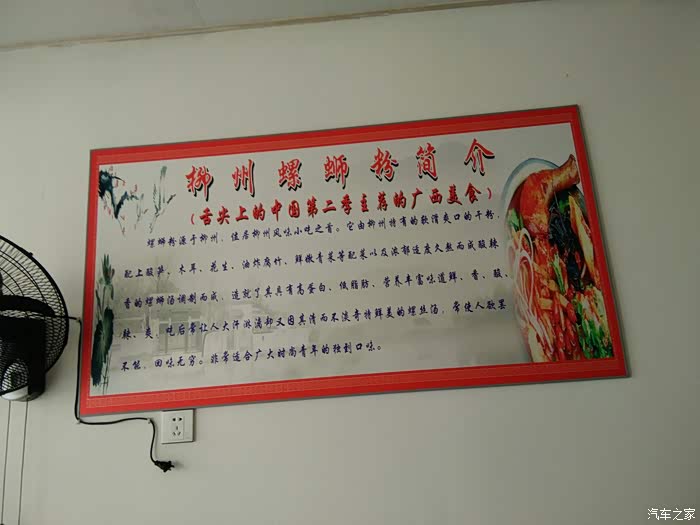 柳州螺蛳粉简介
（舌尖上的中国第二季主荐的广西美食）
螺蛳粉源于柳州，位居柳州风味小吃之首。它由柳州特有的软滑爽口的干粉，
配上酸笋、木耳、花生、油炸腐竹、鲜嫩青菜等配菜以及浓郁适度久熬而成酸辣
香的螺蛳汤调制而成，造就了其具有高蛋白、低脂肪、营养丰富味道鲜、香、酸、
辣、爽，吃后常让人大汗淋漓却又因其清而不淡奇特鲜美的螺丝汤，常使人欲罢
不能，回味无穷。非常适合广大时尚青年的独到口味。
汽车之家